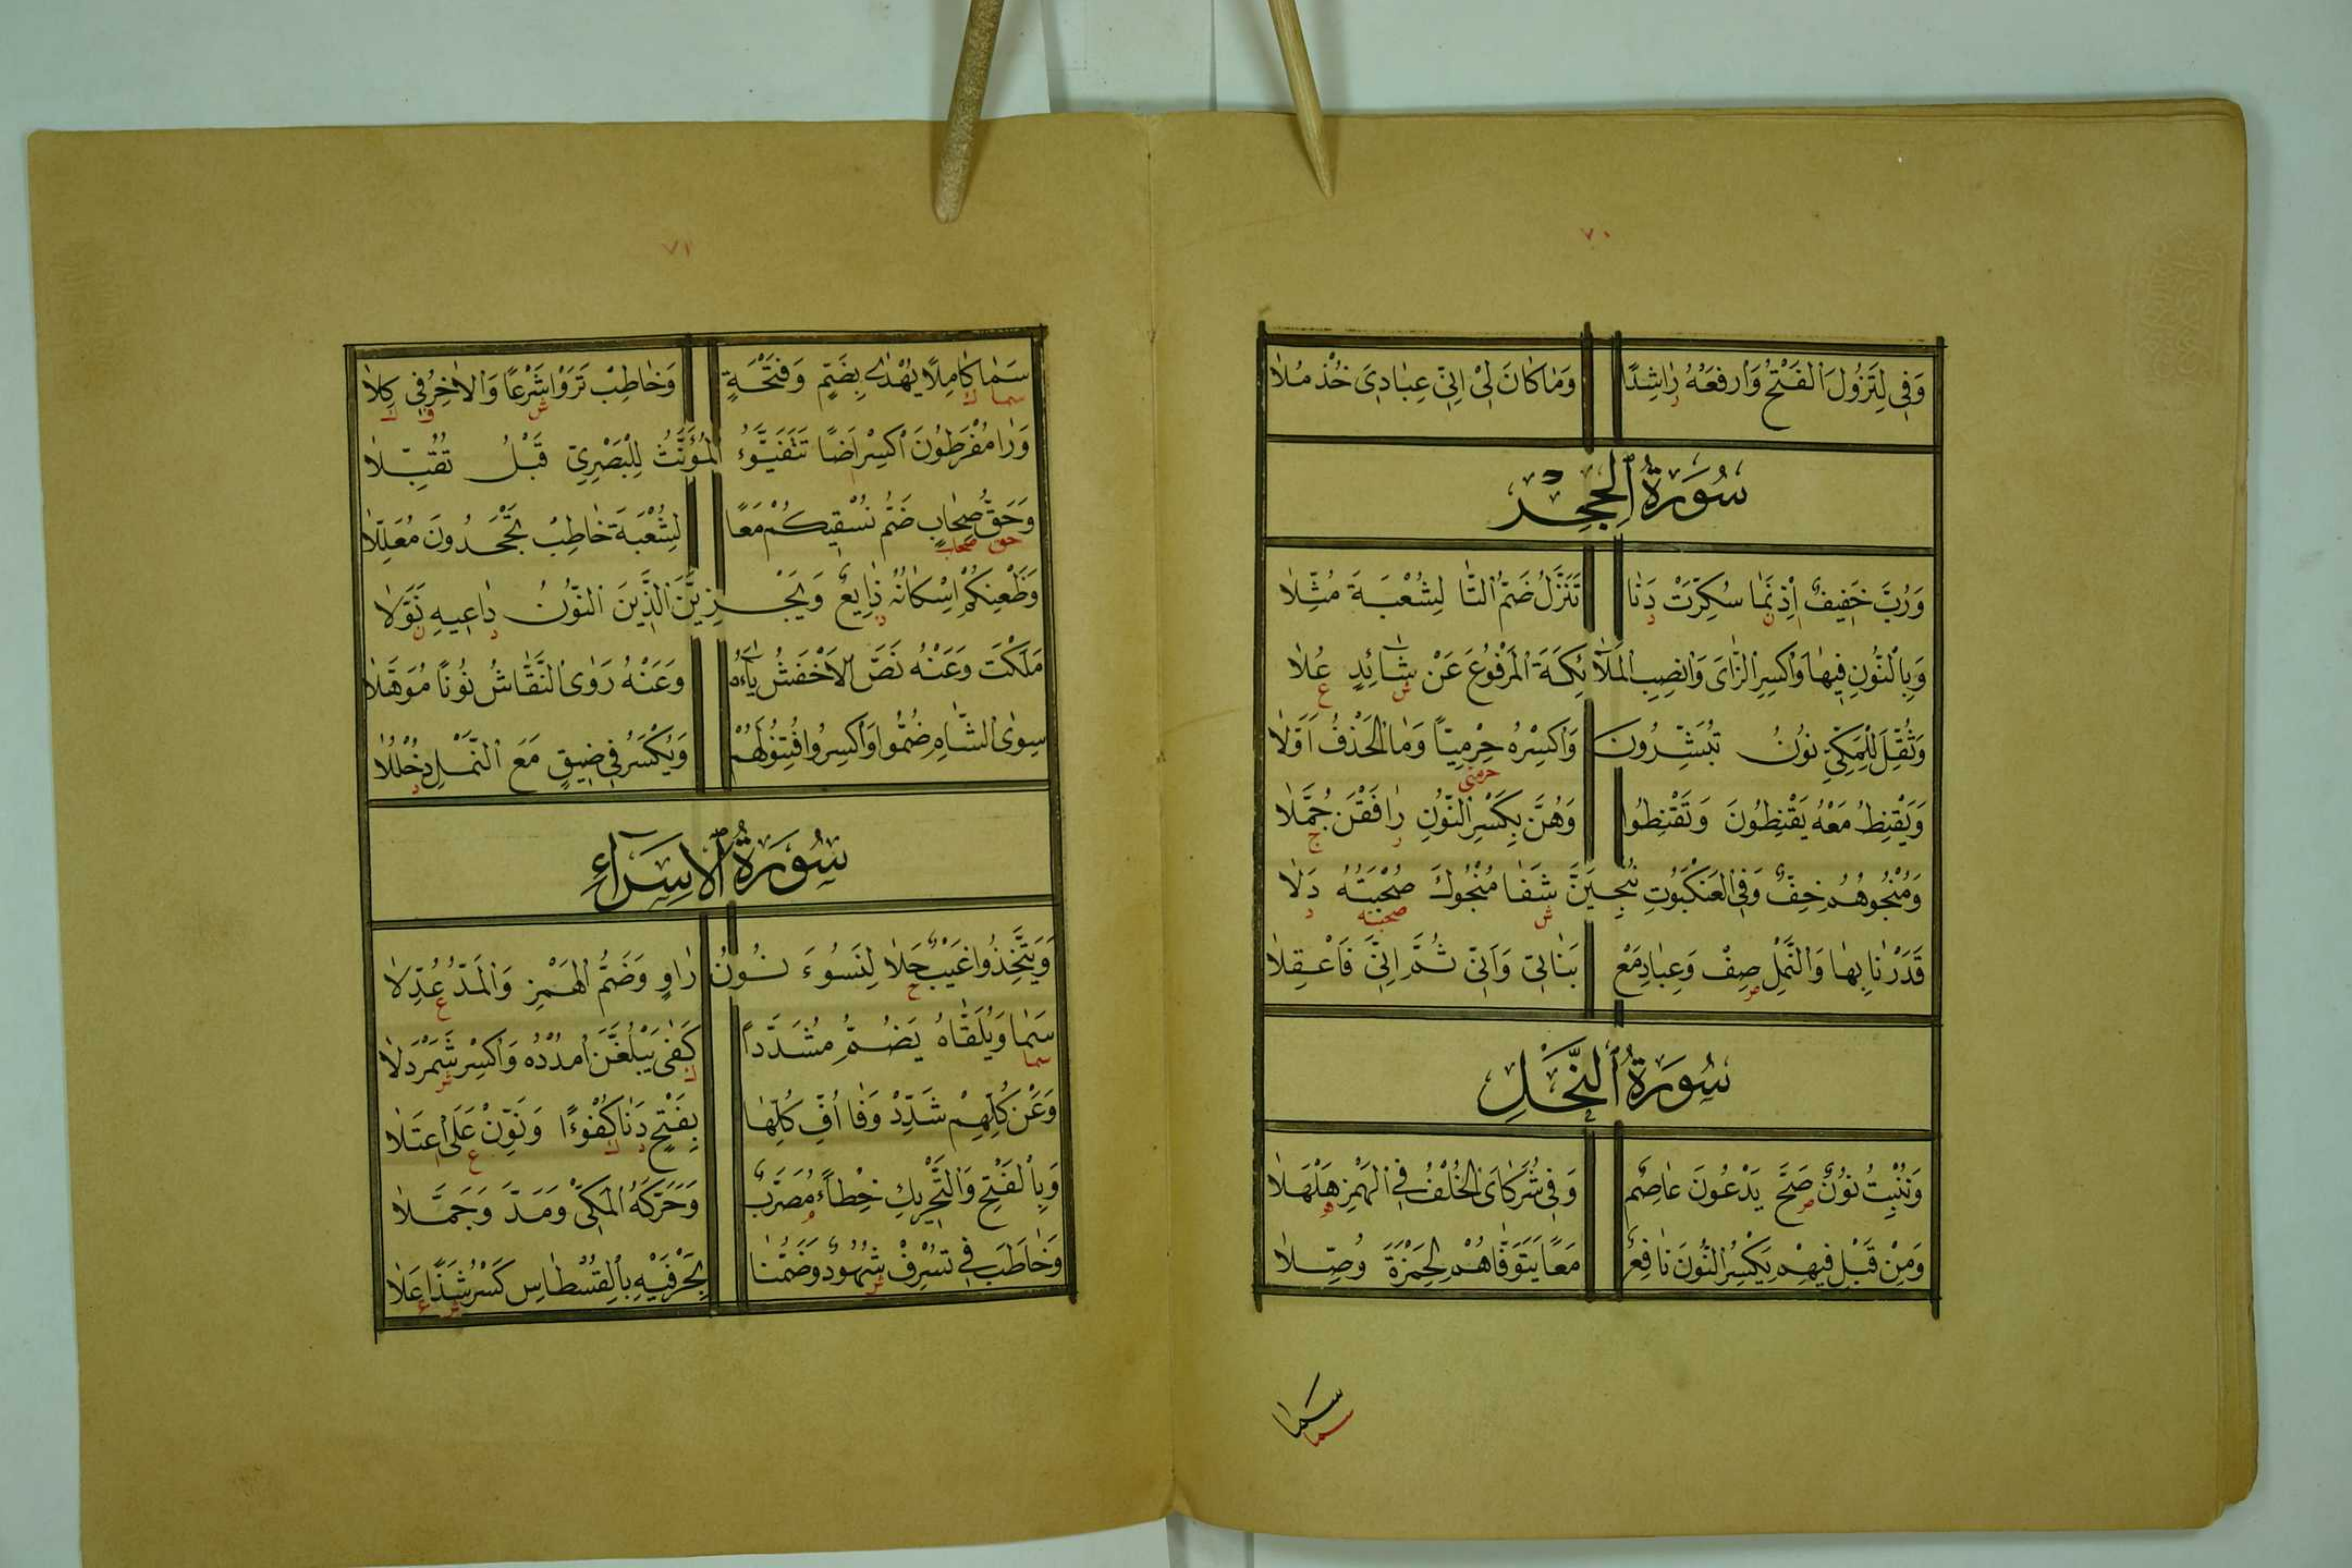 ٧٠
وَفِي لِتَزُولَ الْفَتْحُ وَارْفَعْهُ رَاشِدًا وَمَا كَانَ لِيْ إِنِّيْ عِبَادِيَ خُذْ مُلَا
سُورَةُ الْحِجْرِ
وَرُبَّ خَفِيفٌ إِذْ نَمَا سُكِّرَتْ دَنَا تَنَزَّلُ ضَمُّ التَّا لِشُعْبَةَ مُثِّلَا
وَبِالنُّونِ فِيهَا وَاكْسِرِ الزَّايَ وَانْصِبِ الْمَلَائِكَةَ الْمَرْفُوعَ عَنْ شَائِدٍ عُلَا
وَثُقِّلَ لِلْمَكِّيِّ نُونُ تُبَشِّرُونَ وَاكْسِرْهُ حِرْمِيًّا وَمَا الْحَذْفُ أَوَّلَا
حرمي
وَيَقْنِطُ مَعْهُ يَقْنِطُونَ وَتَقْنِطُوا وَهُنَّ بِكَسْرِ النُّونِ رَافَقْنَ حُمَّلَا
وَمُنْجُوهُمُ خِفٌّ وَفِي الْعَنْكَبُوتِ نُنْجِيَنَّ شَفَا مُنْجُوكَ صُحْبَتُهُ دَلَا
صحبته
قَدَرْنَا بِهَا وَالنَّمْلِ صِفْ وَعِبَادِ مَعْ بَنَاتِيْ وَأَنِّيْ ثُمَّ إِنِّيَ فَاعْقِلَا
سُورَةُ النَّحْلِ
وَنُنْبِتُ نُونٌ صَحَّ يَدْعُونَ عَاصِمٌ وَفِي شُرَكَايَ الْخُلْفُ فِي الْهَمْزِ هَلْهَلَا
وَمِنْ قَبْلِ فِيهِمْ يَكْسِرُ النُّونَ نَافِعٌ مَعًا يَتَوَفَّاهُمْ لِحَمْزَةَ وُصِّلَا
سَمَا
سما
٧١
سَمَا كَامِلًا يُهْدَى بِضَمٍّ وَفَتْحَةٍ وَخَاطِبْ تَرَوْا شَرْعًا وَالْآخِرُ فِي كِلَا
وَرَا مُفْرَطُونَ اكْسِرْ أَضَا تَتَفَيَّؤُ الْمُؤَنَّثُ لِلْبَصْرِيِّ قَبْلُ تُقُبِّلَا
وَحَقُّ صِحَابٍ ضَمُّ نُسْقِيكُمُ مَعًا لِشُعْبَةَ خَاطِبْ تَجْحَدُونَ مُعَلِّلَا
حق صحاب
وَظَعْنِكُمْ إِسْكَانُهُ ذَايِعٌ وَيَجْزِيَنَّ الَّذِينَ النُّونُ دَاعِيهِ نَوَّلَا
مَلَكْتَ وَعَنْهُ نَصَّ الْأَخْفَشُ يَاءَهُ وَعَنْهُ رَوَى النَّقَّاشُ نُونًا مُوَهَّلَا
سِوَى الشَّامِ ضُمُّوا وَاكْسِرُوا فُتِنُوا لَهُمْ وَيُكْسَرُ فِي ضَيْقٍ مَعَ النَّمْلِ دُخْلُلَا
سُورَةُ الْإِسْرَاءِ
وَيَتَّخِذُوا غَيْبٌ حَلَا لِنَسُوءَ نُونُ رَاوٍ وَضَمُّ الْهَمْزِ وَالْمَدِّ عُدِّلَا
سَمَا وَيُلَقَّاهُ يُضَمُّ مُشَدَّدًا كَفَى يَبْلُغَنَّ امْدُدْهُ وَاكْسِرْ شَمَرْدَلَا
سما
وَعَنْ كُلِّهِمْ شَدِّدْ وَفَا أُفِّ كُلِّهَا بِفَتْحٍ دَنَا كُفْؤًا وَنَوِّنْ عَلَى اعْتَلَا
وَبِالْفَتْحِ وَالتَّحْرِيكِ خِطْأً مُصَوَّبٌ وَحَرَّكَهُ الْمَكِّيْ وَمَدَّ وَجَمَّلَا
وَخَاطَبَ فِي تُسْرِفْ شُهُودٌ وَضَمُّنَا بِحَرْفَيْهِ بِالْقِسْطَاسِ كَسْرُ شَذًا عَلَا